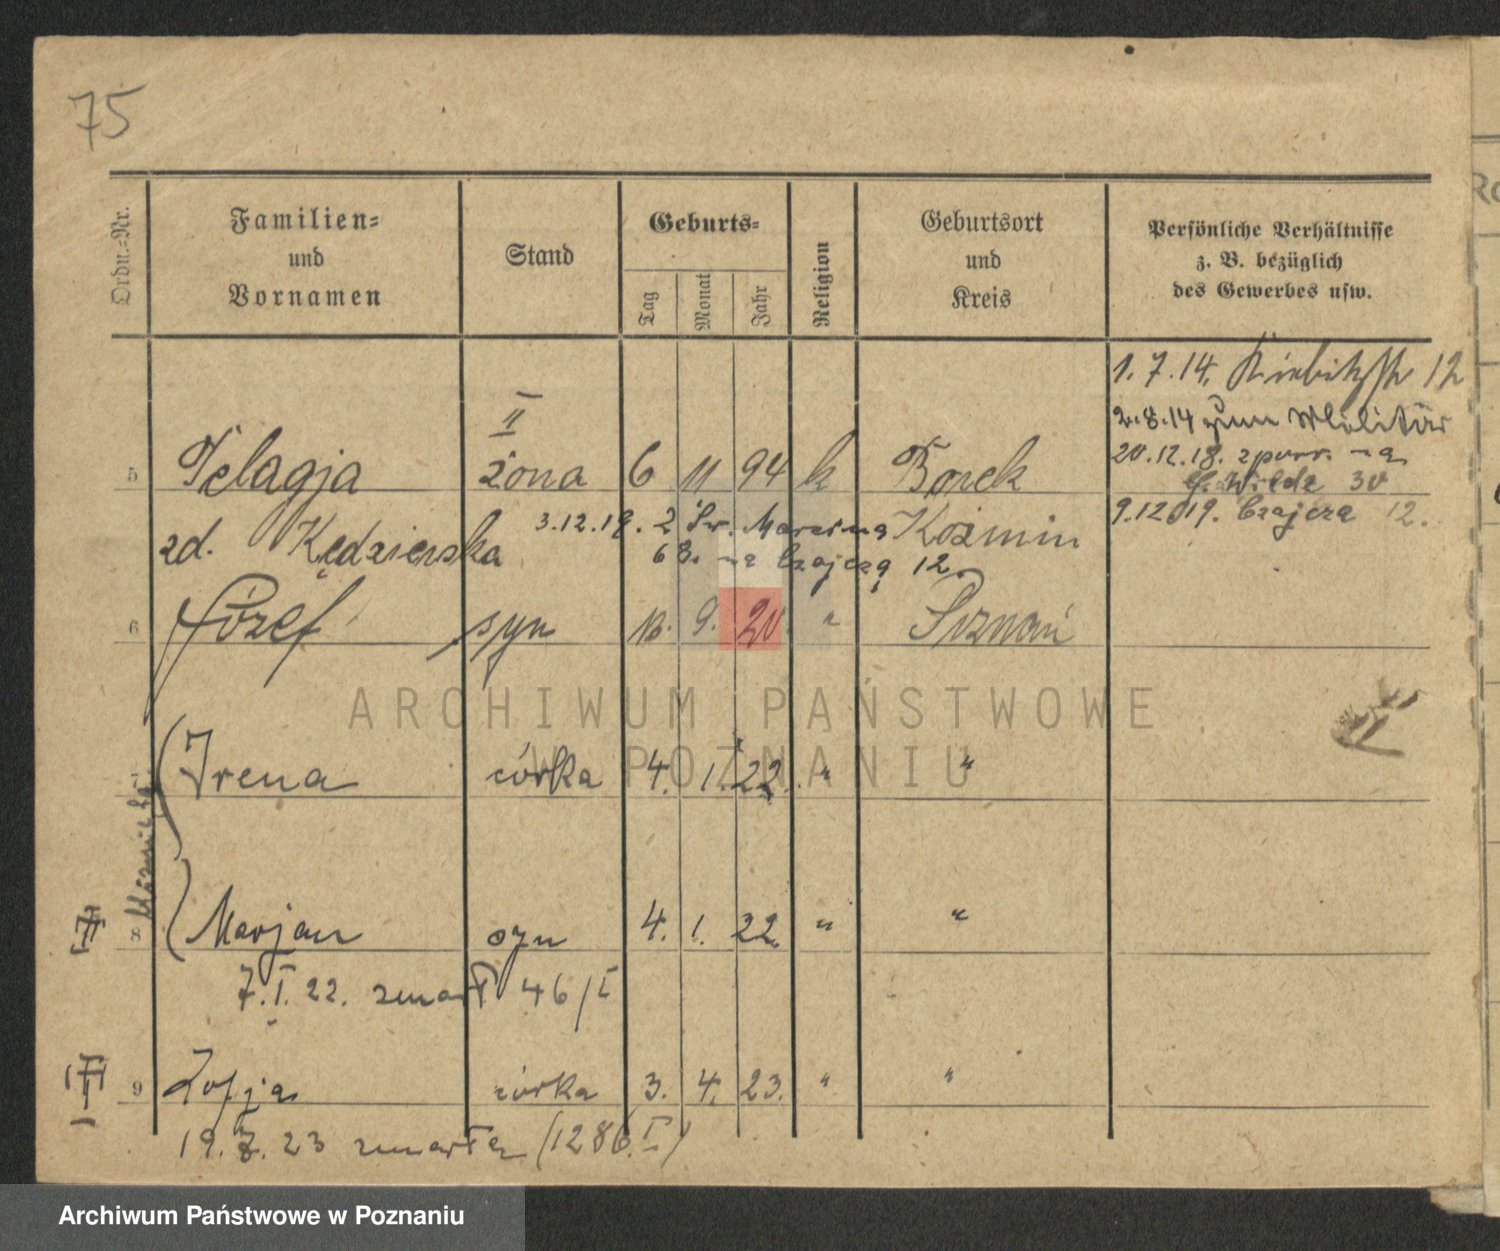 75
Ordn.-Nr.
Familien-
und
Vornamen
Stand
Geburts-
Tag
Monat
Jahr
Religion
Geburtsort
und
Kreis
Persönliche Verhältnisse
z. B. bezüglich
des Gewerbes usw.
1. 7. 14. Kiebitzstr 12
2. 8. 14 zum Militär
20. 12. 18. z powr. na
G. Wilda 30
9. 12. 19. Czajcza 12.
II
5 Pelagja żona 6 11 94 k Borek
zd. Kędzierska Koźmin
3. 12. 19. z Św. Marcina
63. na Czajczą 12.
6 Józef syn 13. 9. 20. " Poznań
Irena córka 4. 1. 22. " "
bliźnięta
8 Marjan syn 4. 1. 22. " "
7. I. 22. zmarł 46/I
9 Zofja córka 3. 4. 23. " "
19. 7. 23 zmarła (1286. I)
ARCHIWUM PAŃSTWOWE
W POZNANIU
Archiwum Państwowe w Poznaniu